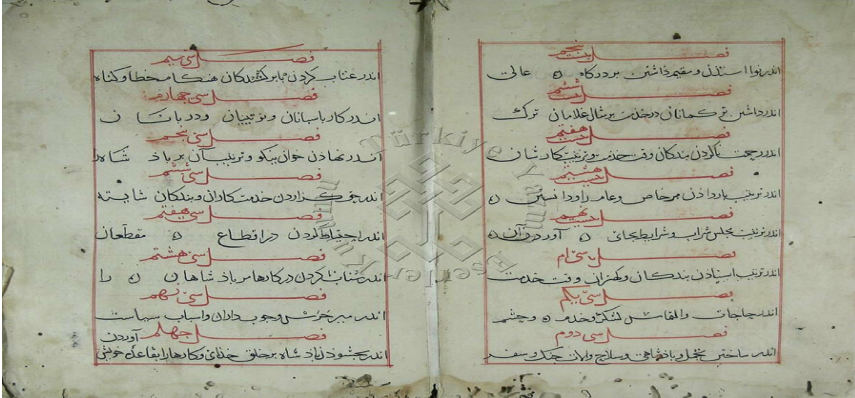 فصل بیست پنجم
اندر نوا استدن و مقیم داشتن بر درکاه عالی
فصل بیست ششم
اندر داشتن ترکمانان در خدمت بر مثال غلامان ترک
فصل بیست هفتم
اندر زحمت ناکردن بندکان وقت خدمت و ترتیب کار شان
فصل بیست هشتم
اندر ترتیب بار دادن مر خاص و عام را و دانستن
فصل بیست نهم
اندر ترتیب مجلس شراب و شرایط بجای آوردن آن
فصل سی ام
اندر ترتیب استادن بندکان و کهتران وقت خدمت
فصل سی یکم
اندر حاجات و التماس لشکر و خدمت و حشم
فصل سی دوم
اندر ساختن تجمل و سلاح و جنک و سفر
فصل سی سیم
اندر عتاب کردن با برکشیدکان هنکام خطا و کناه
فصل سی چهارم
اندر کار پاسبانان و نوبتیان و دربانان
فصل سی پنجم
اندر نهادن خوان نیکو و ترتیب آن بر پادشاه را
فصل سی ششم
اندر حق کزاردن خدمتکاران و بندکان شایسته
فصل سی هفتم
اندر احتیاط کردن در اقطاع مقطعان
فصل سی هشتم
اندر شتاب کردن در کارها مر پادشاهان را
فصل سی نهم
اندر میر حرس و چوب داران و اسباب سیاست
فصل چهلم آوردن
اندر بخشودن پادشاه بر خلق خدای و کارها را بقاعده خویش
Türkiye Yazma Eserler